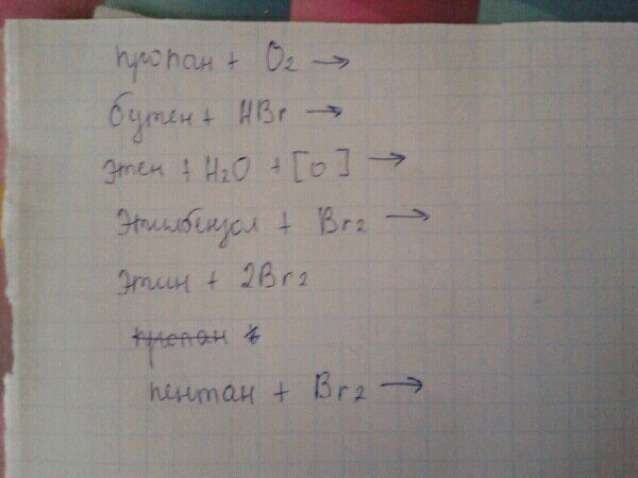 пропан + O₂ →
бутен + HBr →
этен + H₂O + [O] →
Этилбензол + Br₂ →
этин + 2Br₂
пропан +
пентан + Br₂ →